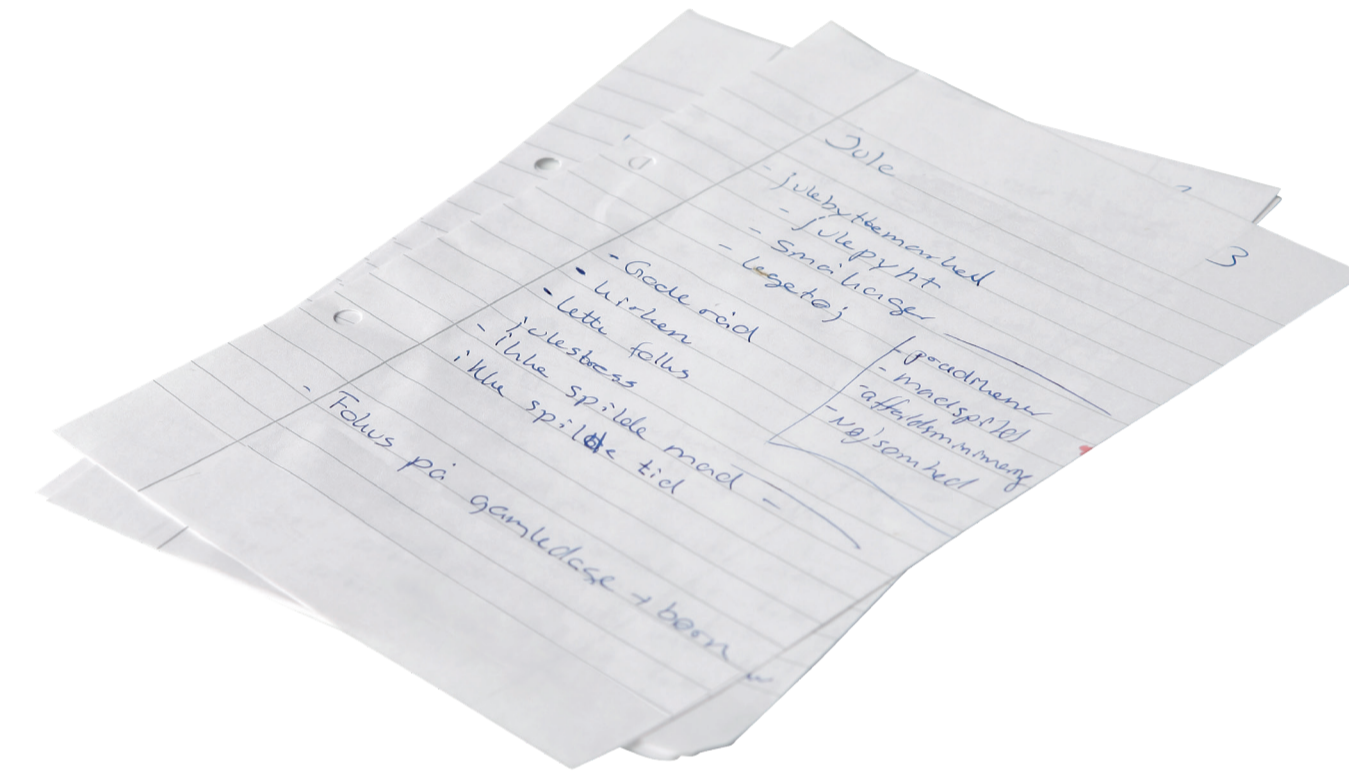 3
Jule
- julebyttemarked
- julepynt
- småkager
- legetøj
- Gode råd
- kirken
- lette folks
julestress
- ikke spilde mad -
ikke spilde tid
- madspild
- affaldsminimering
- Nøjsomhed
- Fokus på gamledage + børn